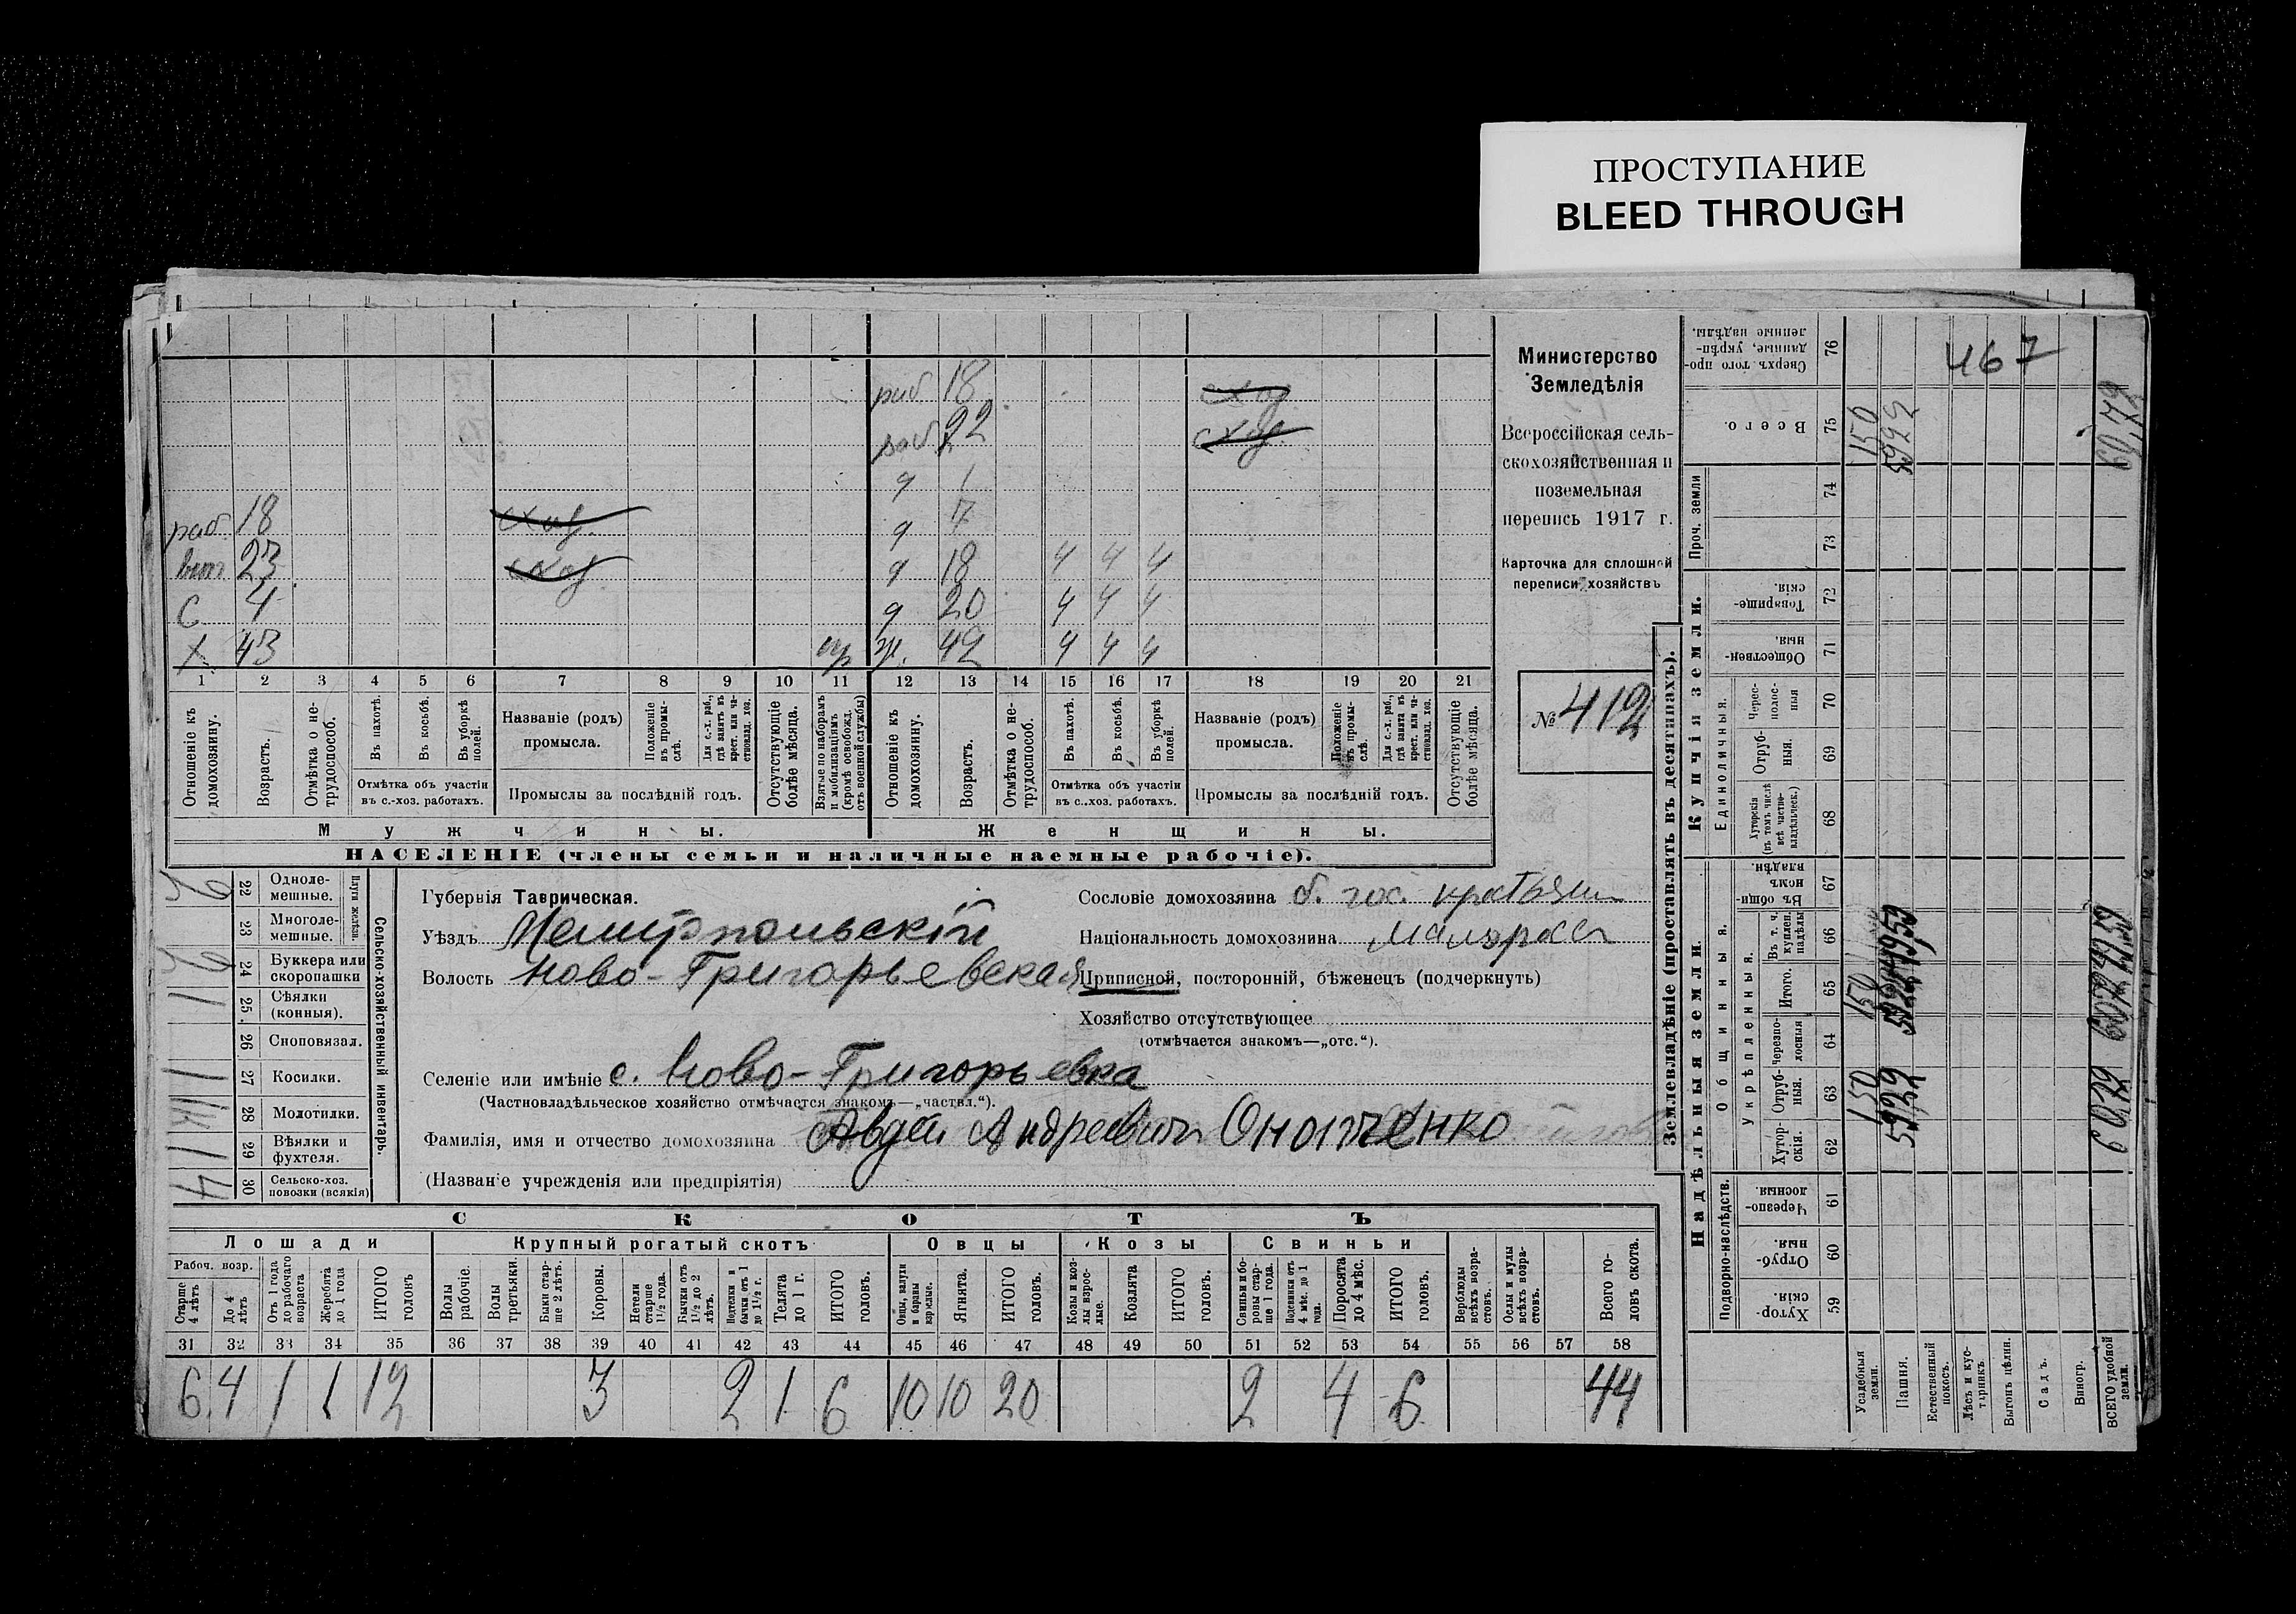 ПРОСТУПАНИЕ
BLEED THROUGH
раб. 18
раб. 22
д 1
д 7
раб 18
23 д 18 4 4 4
С 4 д 20 4 4 4
Х 43 ж. 42 4 4 4
1 2 3 4 5 6 7 8 9 10 11 12 13 14 15 16 17 18 19 20 21
Отношеніе къ домохозяину.
Возрастъ.
Отмѣтка о нетрудоспособ.
Въ пахотѣ.
Въ косьбѣ.
Въ уборкѣ полей.
Отмѣтка объ участіи въ с.-хоз. работахъ.
Названіе (родъ) промысла.
Положеніе въ промыслѣ.
Для с.-х. раб., гдѣ занятъ въ крест. или частновлад. хоз.
Промыслы за послѣдній годъ.
Отсутствующіе болѣе мѣсяца.
Взятые по наборамъ и мобилизаціямъ (кромѣ освобожд. отъ военной службы)
Отношеніе къ домохозяину.
Возрастъ.
Отмѣтка о нетрудоспособ.
Въ пахотѣ.
Въ косьбѣ.
Въ уборкѣ полей.
Отмѣтка объ участіи въ с.-хоз. работахъ.
Названіе (родъ) промысла.
Положеніе въ промыслѣ.
Для с.-х. раб., гдѣ занята въ крест. или частновлад. хоз.
Промыслы за послѣдній годъ.
Отсутствующіе болѣе мѣсяца.
Мужчины. Женщины.
НАСЕЛЕНІЕ (члены семьи и наличные наемные рабочіе).
Министерство
Земледѣлія
Всероссійская сель-
скохозяйственная и
поземельная
перепись 1917 г.
Карточка для сплошной
переписи хозяйствъ
№ 412
22 Одноле-мешные.
23 Многоле-мешные.
Плуги желѣзн.
24 Буккера или скоропашки
25 Сѣялки (конныя). 1
26 Сноповязал.
27 Косилки. 1
28 Молотилки.
29 Вѣялки и фухтеля. 1
30 Сельско-хоз. повозки (всякія) 4
Сельско-хозяйственный инвентарь.
Губернія Таврическая.
Уѣздъ Мелитопольскій
Волость Ново-Григорьевская
Селеніе или имѣніе с. Ново-Григорьевка
(Частновладѣльческое хозяйство отмѣчается знакомъ—„частвл.“).
Фамилія, имя и отчество домохозяина Авдей Андреевичъ Онопченко
(Названіе учрежденія или предпріятія)
Сословіе домохозяина б. гос. крестьян
Національность домохозяина малоросс
Приписной, посторонній, бѣженецъ (подчеркнуть)
Хозяйство отсутствующее
(отмѣчается знакомъ—„отс.“).
СКОТЪ
Лошади Крупный рогатый скотъ Овцы Козы Свиньи
Рабоч. возр.
Старше 4 лѣтъ
До 4 лѣтъ
Отъ 1 года до рабочаго возраста
Жеребята до 1 года
ИТОГО головъ
Волы рабочіе.
Волы третьяки.
Быки старше 2 лѣтъ.
Коровы.
Нетели старше 1½ года.
Бычки отъ 1½ до 2 лѣтъ.
Подтелки и бычки отъ 1 до 1½ г.
Телята до 1 г.
ИТОГО головъ.
Овцы, валухи и бараны взрослые.
Ягнята.
ИТОГО головъ.
Козы и козлы взрослые.
Козлята
ИТОГО головъ.
Свиньи и боровы старше 1 года.
Подсвинки отъ 4 мѣс. до 1 года.
Поросята до 4 мѣс.
ИТОГО головъ.
Верблюды всѣхъ возрастовъ.
Ослы и мулы всѣхъ возрастовъ.
Всего головъ скота.
31 32 33 34 35 36 37 38 39 40 41 42 43 44 45 46 47 48 49 50 51 52 53 54 55 56 57 58
6 4 1 1 12 3 2 1 6 10 10 20 2 4 6 44
Землевладѣніе (проставлять въ десятинахъ).
Надѣльныя земли. Купчія земли.
Подворно-наслѣдств.
Общинныя.
Укрѣпленныя.
Единоличныя.
Проч. земли
Сверхъ того проданные, укрѣпленные надѣлы. 76
Всего. 75
74
73
Товарищескія. 72
Общественныя. 71
Чересполосныя 70
Отрубныя. 69
Хуторскія (въ томъ числѣ всѣ частновладѣльческ.) 68
Въ общинномъ владѣн. 67
Въ т. ч. куплен. надѣлы 66
Итого. 65
Черезполосныя 64
Отрубныя. 63
Хуторскія. 62
Черезполосныя 61
Отрубныя. 60
Хуторскія. 59
467
150
5922
150
150
Усадебныя земли.
Пашня.
Естественный покосъ.
Лѣсъ и кустарникъ.
Выгонъ цѣлин.
Садъ.
Виногр.
ВСЕГО удобной земли.